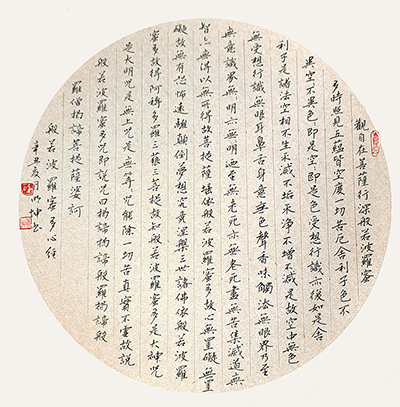 觀自在菩薩行深般若波羅蜜
多時照見五蘊皆空度一切苦厄舍利子色不
異空不異色々即是空々即是色受想行識亦復如是舍
利子是諸法空相不生不滅不垢不淨不增不減是故空中無色
無受想行識無眼耳鼻舌身意無色聲香味觸法無眼界乃至
無意識界無明亦無明盡乃至無老死亦無老死盡無苦集滅道無
智亦無得以無所得故菩提薩埵依般若波羅蜜多故心無罣礙無罣
礙故無有恐怖遠離顛倒夢想究竟涅槃三世諸佛依般若波羅
蜜多故得阿耨多羅三藐三菩提故知般若波羅蜜多是大神咒
是大明咒是無上咒是無等々咒能除一切苦真實不虛故說
般若波羅蜜多咒即說咒曰揭諦揭諦般羅揭諦般
羅僧揭諦菩提薩婆訶
般若波羅蜜多心經
辛丑夏月明坤書